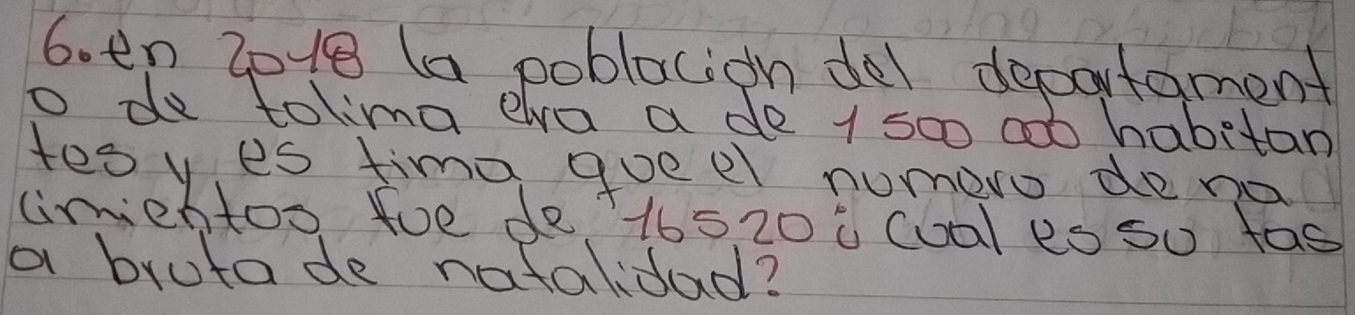 6. en 2018 la poblacion del departament
o de tolima era a de 1 500 000 habitan
tes y es tima que el numero de na
cimientos fue de 16520 ¿ cual es su tas
a bruta de natalidad?